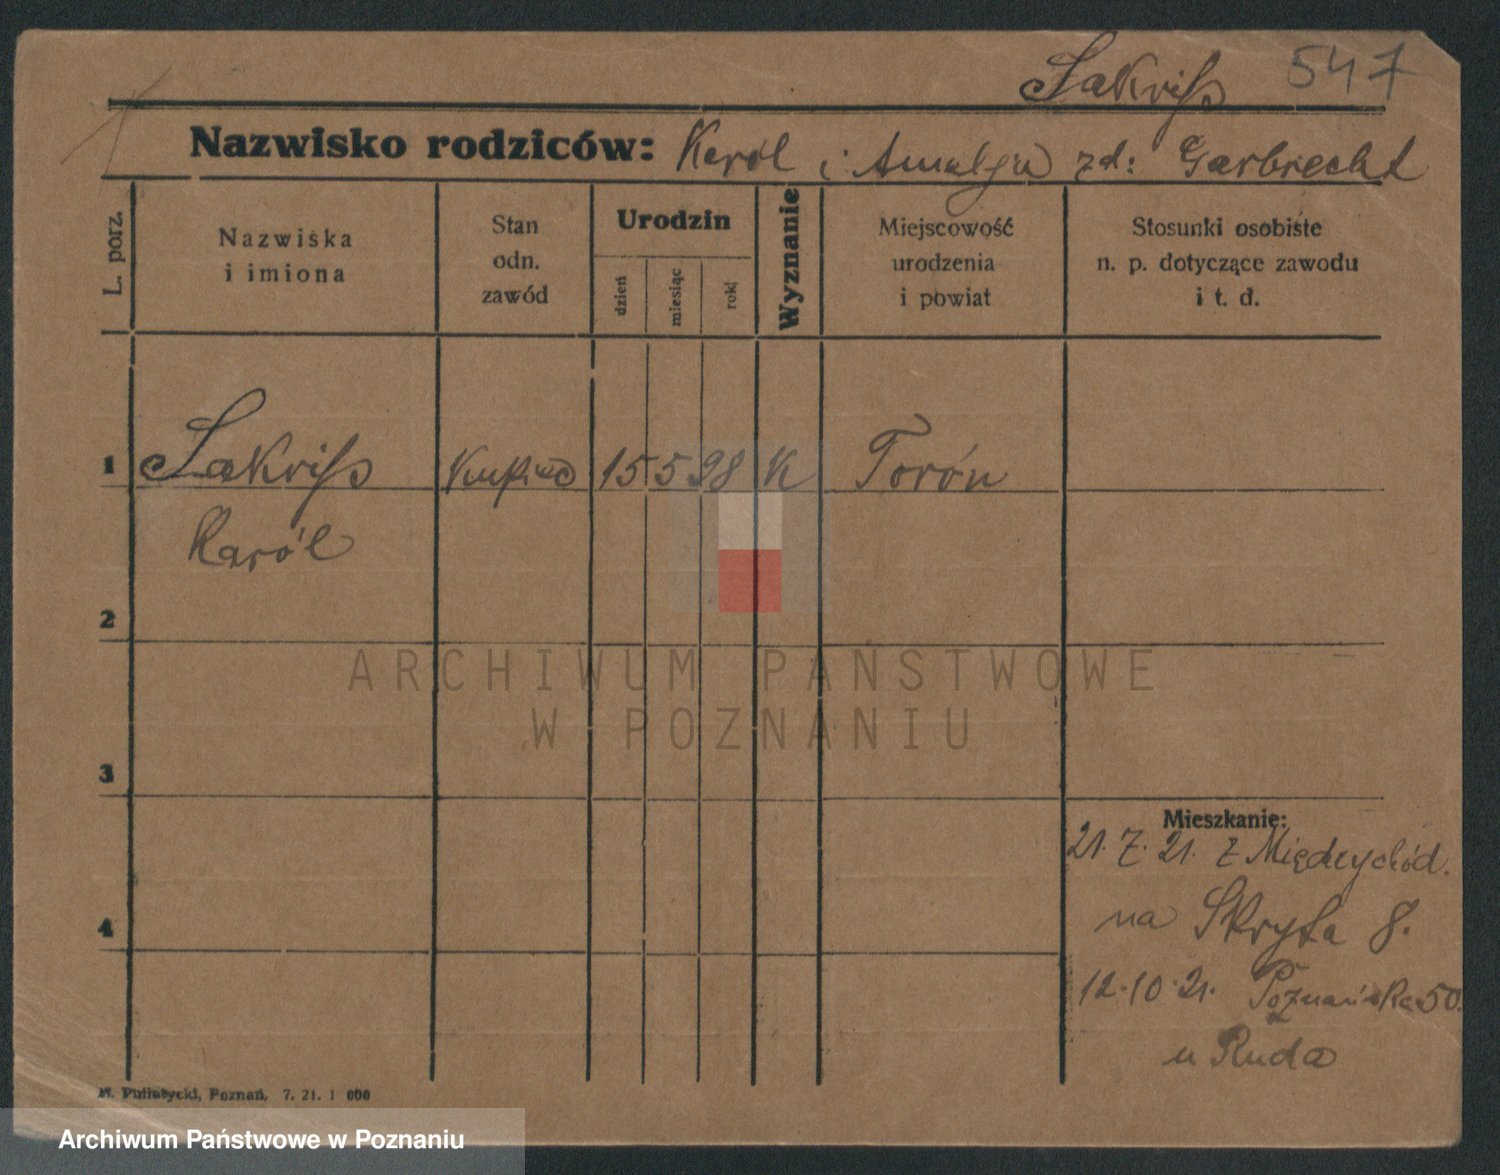 Sakriss 547
Nazwisko rodziców: Karól i Amalja zd: Garbrecht
L. porz.
Nazwiska
i imiona
Stan
odn.
zawód
Urodzin
dzień
miesiąc
rok
Wyznanie
Miejscowość
urodzenia
i powiat
Stosunki osobiste
n. p. dotyczące zawodu
i t. d.
1 Sakriss kupiec 15 5 98 K Torón
Karól
2
3
4
Mieszkanie:
21. 7. 21. z Międzychód.
na Skryta 8.
12.10.21. Poznańska 50.
u Ruda
Putiatycki, Poznań. 7. 21. 1 000
ARCHIWUM PAŃSTWOWE
W POZNANIU
Archiwum Państwowe w Poznaniu